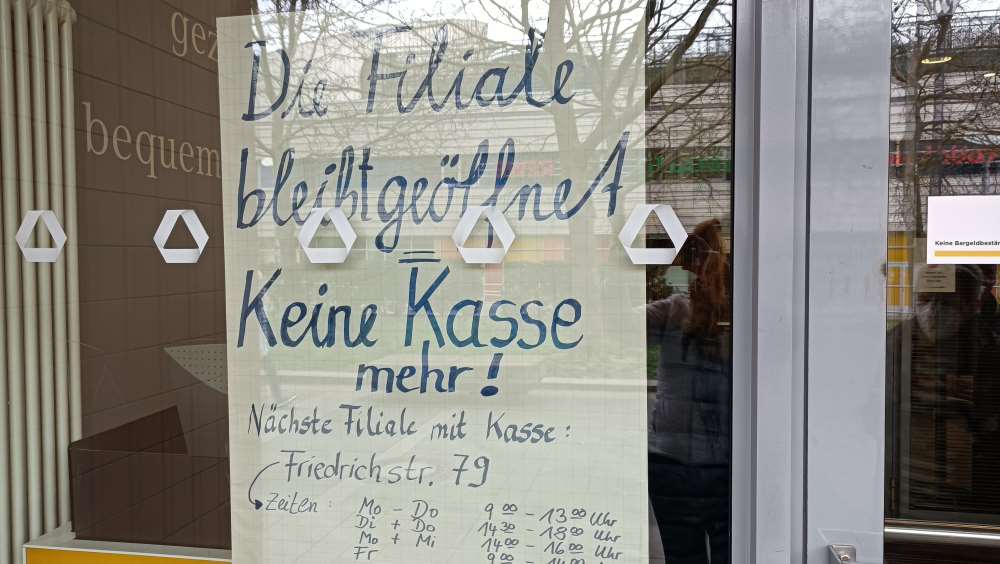 gez
bequem
Die Filiale
bleibt geöffnet
Keine Kasse
mehr!
Nächste Filiale mit Kasse:
Friedrichstr. 79
Zeiten: Mo - Do 9 00 - 13 00 Uhr
Di + Do 14 30 - 18 00 Uhr
Mo + Mi 14 00 - 16 00 Uhr
Fr 9 00 - 14 00
Keine Bargeldbestän